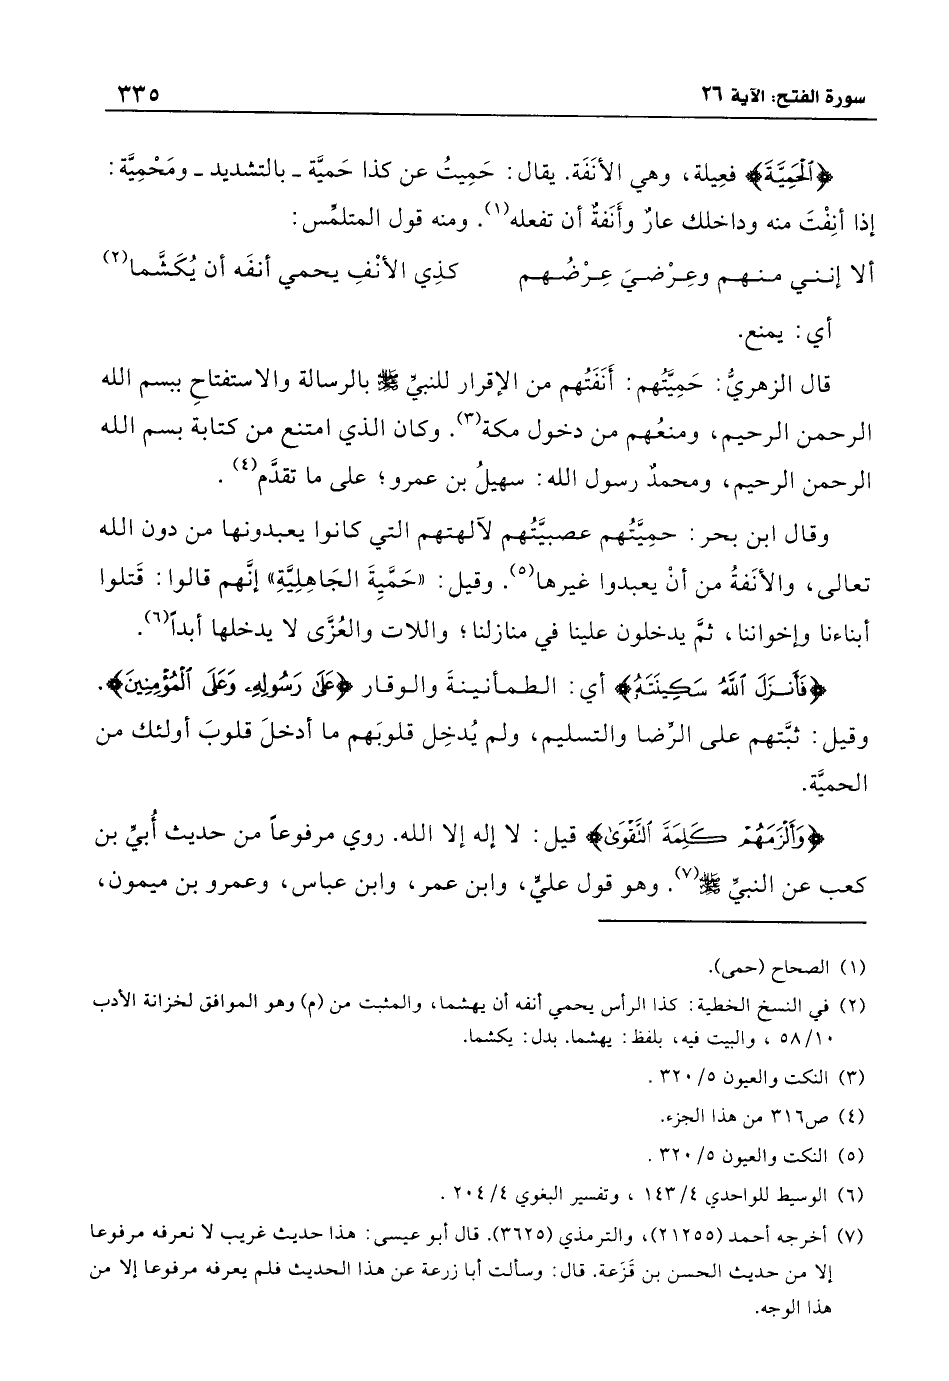 سورة الفتح: الآية ٢٦
٣٣٥
﴿الْحَمِيَّةَ﴾ فعِيلة، وهي الأنَفَة. يقال: حَمِيتُ عن كذا حَميَّة ـ بالتشديد ـ ومَحْمِيَّة:
إذا أنِفْتَ منه وداخلك عارٌ وأَنَفةٌ أن تفعله(١). ومنه قول المتلمِّس:
ألا إنـنـي مـنـهـم وعِـرْضـيَ عِـرْضُـهـم كذِي الأنْفِ يحمي أنفَه أن يُكَشَّما(٢)
أي: يمنع.
قال الزهريُّ: حَمِيَّتُهم: أَنَفَتُهم من الإقرار للنبيِّ ﷺ بالرسالة والاستفتاحِ ببسم الله
الرحمن الرحيم، ومنعُهم من دخول مكة(٣). وكان الذي امتنع من كتابة بسم الله
الرحمن الرحيم، ومحمدٌ رسول الله: سهيلُ بن عمرو؛ على ما تقدَّم(٤).
وقال ابن بحر: حمِيَّتُهم عصبيَّتُهم لآلهتهم التي كانوا يعبدونها من دون الله
تعالى، والأنَفةُ من أنْ يعبدوا غيرها(٥). وقيل: «حَمِّيَةَ الجَاهِلِيَّةِ» إنَّهم قالوا: قَتلوا
أبناءنا وإخواننا، ثمَّ يدخلون علينا في منازلنا؛ واللات والعُزَّى لا يدخلها أبداً(٦).
﴿فَأَنزَلَ اللَّهُ سَكِينَتَهُ﴾ أي: الطمأنينةَ والوقار ﴿عَلَى رَسُولِهِۦ وَعَلَى الْمُؤْمِنِينَ﴾.
وقيل: ثبَّتهم على الرِّضا والتسليم، ولم يُدخِل قلوبَهم ما أدخلَ قلوبَ أولئك من
الحميَّة.
﴿وَأَلْزَمَهُمْ كَلِمَةَ التَّقْوَىٰ﴾ قيل: لا إله إلا الله. روي مرفوعاً من حديث أُبيِّ بن
كعب عن النبيِّ ﷺ(٧). وهو قول عليٍّ، وابن عمر، وابن عباس، وعمرو بن ميمون،
(١) الصحاح (حمى).
(٢) في النسخ الخطية: كذا الرأس يحمي أنفه أن يهشما، والمثبت من (م) وهو الموافق لخزانة الأدب
٥٨/١٠ ، والبيت فيه، بلفظ: يهشما. بدل: يكشما.
(٣) النكت والعيون ٣٢٠/٥ .
(٤) ص٣١٦ من هذا الجزء.
(٥) النكت والعيون ٣٢٠/٥ .
(٦) الوسيط للواحدي ١٤٣/٤ ، وتفسير البغوي ٢٠٤/٤ .
(٧) أخرجه أحمد (٢١٢٥٥)، والترمذي (٣٦٢٥). قال أبو عيسى: هذا حديث غريب لا نعرفه مرفوعا
إلا من حديث الحسن بن قَزَعة. قال: وسألت أبا زرعة عن هذا الحديث فلم يعرفه مرفوعا إلا من
هذا الوجه.